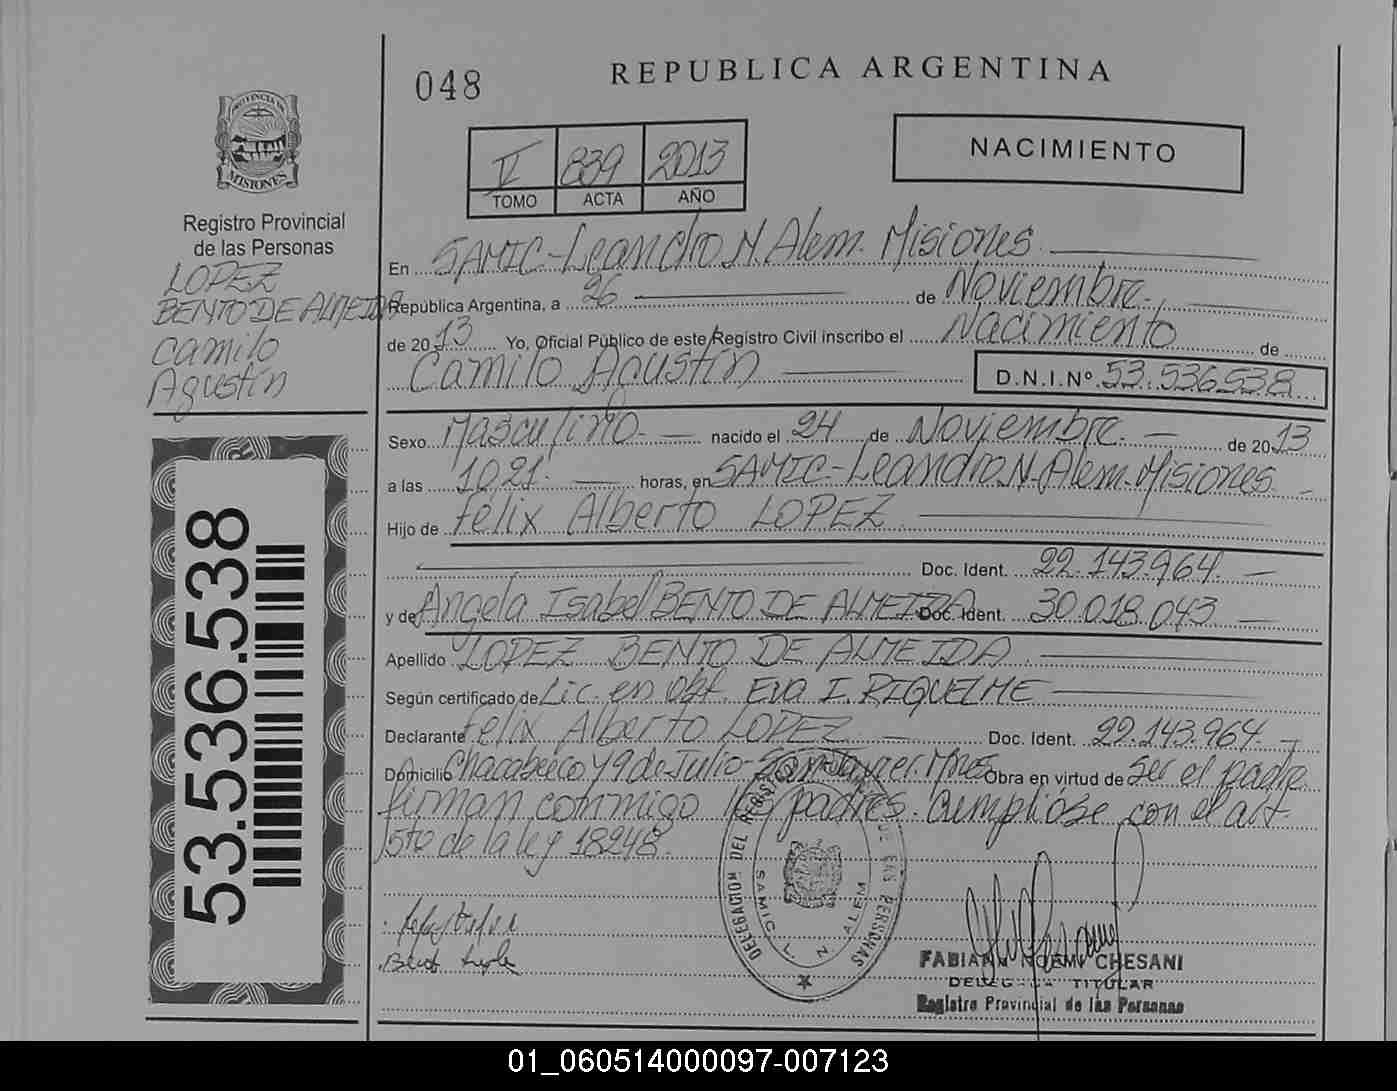 048
REPUBLICA ARGENTINA
PROVINCIA DE
MISIONES
V 839 2013
TOMO ACTA AÑO
NACIMIENTO
Registro Provincial
de las Personas
LOPEZ
BENTO DE ALMEIDA
Camilo
Agustín
53.536.538
En SAMIC-Leandro N. Alem. Misiones
República Argentina, a 26 de Noviembre.
de 2013 Yo, Oficial Público de este Registro Civil inscribo el Nacimiento de
Camilo Agustín D.N.I.Nº 53.536.538
Sexo Masculino nacido el 24 de Noviembre. de 2013
a las 10.21. horas, en SAMIC-Leandro N. Alem. Misiones
Hijo de Félix Alberto LOPEZ
Doc. Ident. 22.143.964.
y de Angela Isabel BENTO DE ALMEIDA Doc. Ident. 30.018.043
Apellido LOPEZ BENTO DE ALMEIDA
Según certificado de Lic. en Obst. Eva I. RIQUELME
Declarante Félix Alberto LOPEZ Doc. Ident. 22.143.964.
Domicilio Chacabuco y 9 de Julio-San Javier. Mnes Obra en virtud de Ser el padre
firman conmigo los padres. Cumplióse con el art
5to de la ley 18248.
DELEGACION DEL REGISTRO DE LAS PERSONAS
SAMIC L. N. ALEM
NOEMI CHESANI
TITULAR
Registro Provincial de las Personas
01_060514000097-007123